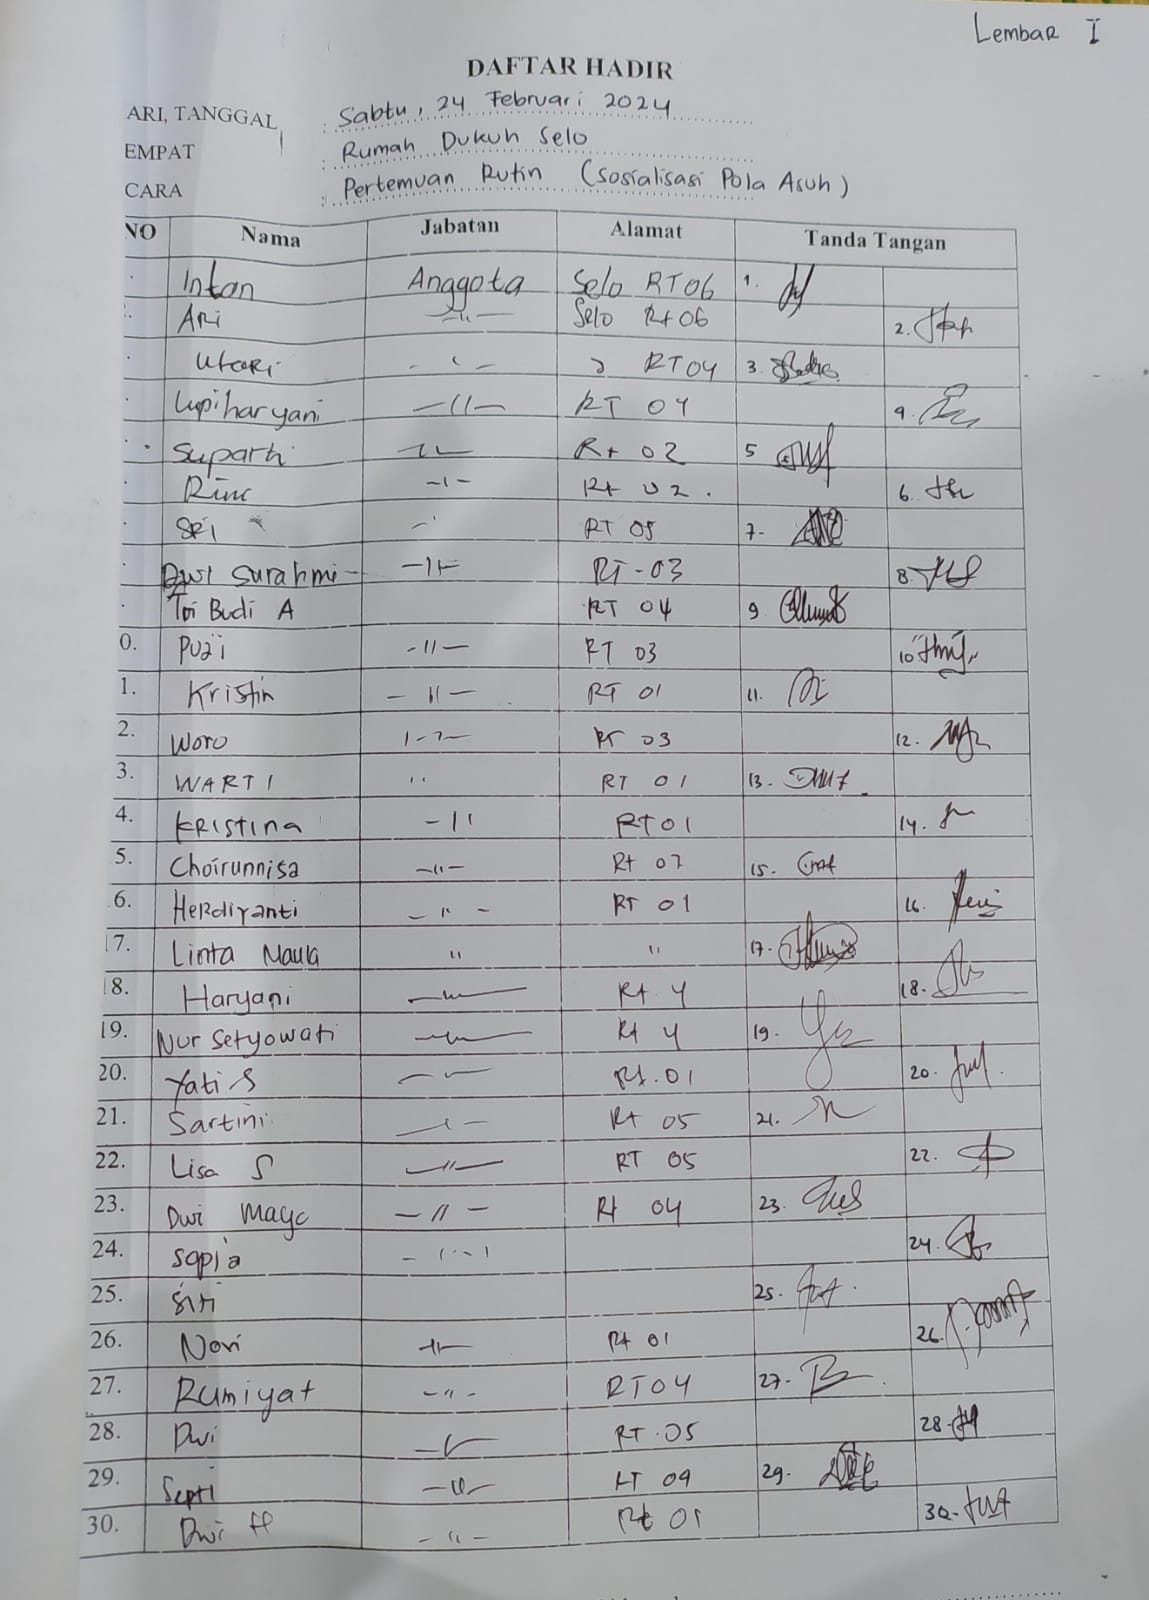 Lembar I
DAFTAR HADIR
ARI, TANGGAL : Sabtu, 24 Februari 2024
EMPAT : Rumah Dukuh Selo
CARA : Pertemuan Rutin (Sosialisasi Pola Asuh)
NO Nama Jabatan Alamat Tanda Tangan
Intan Anggota Selo RT 06 1.
Ari -"- Selo Rt 06 2.
Utari - " - RT 04 3.
Lupiharyani -"- RT 04 4.
Suparti -"- Rt 02 5
Rt 02. 6.
SRI RT 05 7.
Dwi Surahmi -"- RT-03 8.
Tri Budi A RT 04 9
0. Puji -"- RT 03 10
1. Kristin -"- RT 01 11.
2. Woro RT 03 12.
3. WARTI " RT 01 13.
4. KRISTINA -" RT 01 14.
5. Choirunnisa -"- Rt 07 15.
6. Herdiyanti -"- RT 01 16.
17. Linta Maula " " 17.
18. Haryani -"- Rt 4 18.
19. Nur Setyowati -"- Rt 4 19.
20. Yati S Rt.01 20.
21. Sartini Rt 05 21.
22. Lisa S -"- RT 05 22.
23. Dwi -"- Rt 04 23.
24. Sopia 24.
25. Siti 25.
26. Novi -"- Rt 01 26.
27. Rumiyat -"- RT 04 27.
28. Dwi RT.05 28.
29. Septi -"- 29.
30. Dwi -"- Rt 01 30.